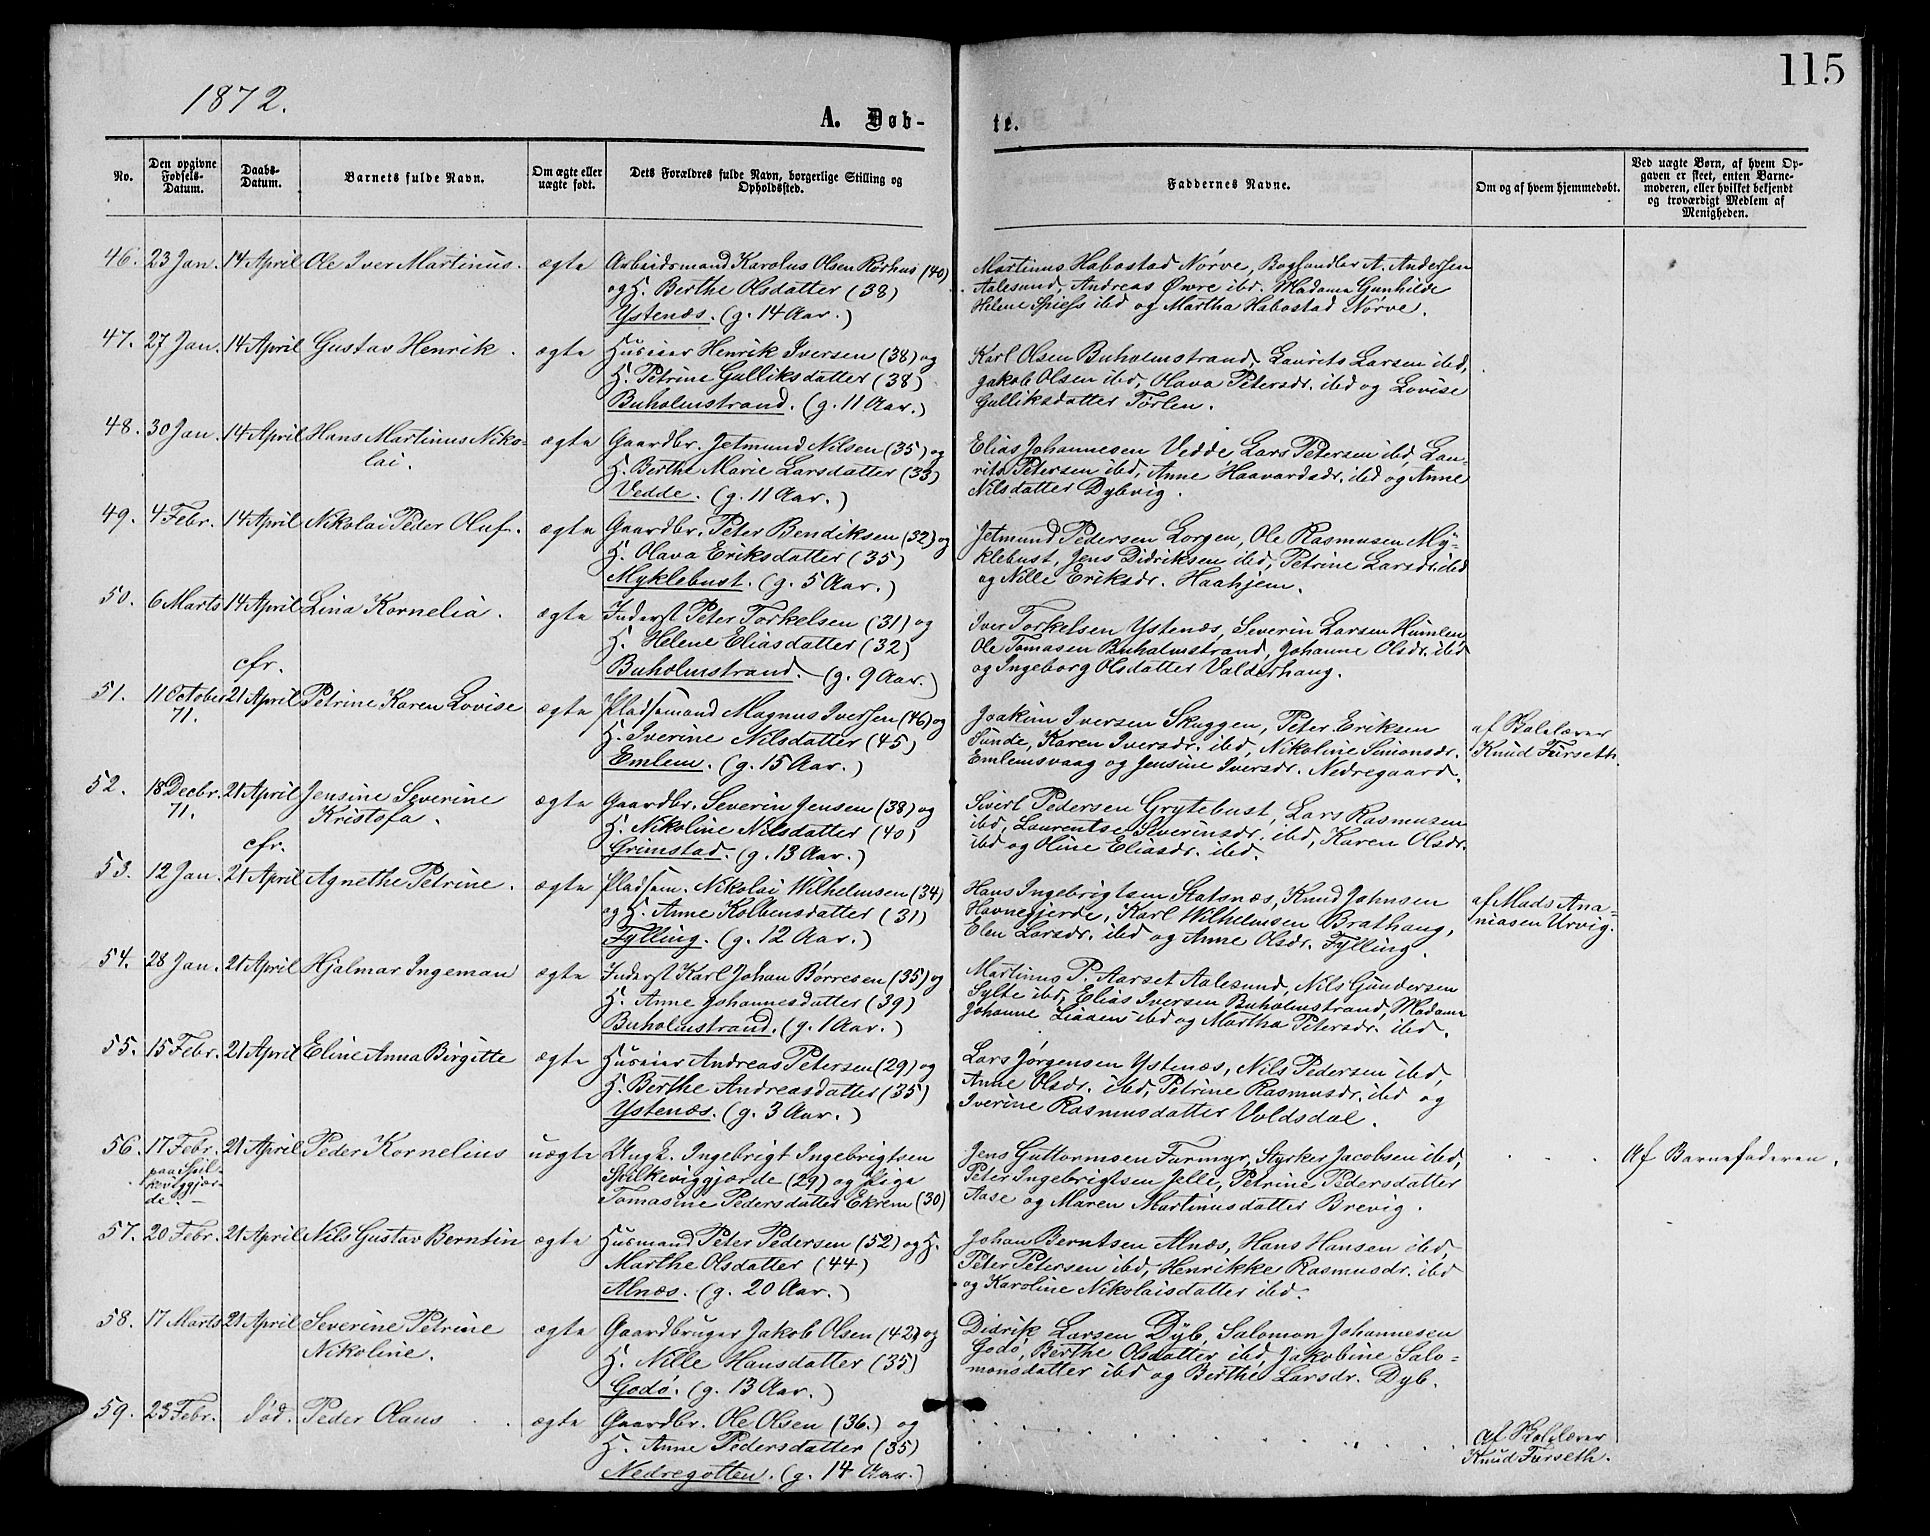 115
1872.
A. Døb-
te.
No.
Den opgivne
Fødsels-
Datum.
Daabs-
Datum.
Barnets fulde Navn.
Om ægte eller
uægte født.
Dets Forældres fulde Navn, borgerlige Stilling og
Opholdssted.
Faddernes Navne.
Om og af hvem hjemmedøbt.
Ved uægte Børn, af hvem Op-
gaven er skeet, enten Barne-
moderen, eller hvilket bekjendt
og troværdigt Medlem af
Menigheden.
46. 23 Jan. 14 April Ole Iver Martinus. ægte Arbeidsmand Karolus Olsen Rørhus (40)
og H. Berthe Olsdatter (38)
Ystenæs. (g. 14 Aar.)
Martinus Habostad Nørve, Boghandler A. Andersen
Aalesund, Andreas Øwre ibd. Madame Gunhilde
Helene Spiefs ibd og Martha Habostad Nørve.
47. 27 Jan. 14 April Gustav Henrik. ægte Huseier Henrik Iversen (38) og
H. Petrine Gulliksdatter (38)
Buholmstrand. (g. 11 Aar.)
Karl Olsen Buholmstrand, Laurits Larsen ibd,
Jakob Olsen ibd, Olava Petersdr. ibd og Lovise
Gulliksdatter Tørlen.
48. 30 Jan. 14 April Hans Martinus Niko-
lai. ægte Gaardbr. Jetmund Nilsen (35) og
H. Berthe Marie Larsdatter (33)
Vedde. (g. 11 Aar.)
Elias Johannesen Vedde, Lars Petersen ibd, Lau-
rits Petersen ibd, Anne Haavardsdr. ibd og Anne
Nilsdatter Dybvig.
49. 4 Febr. 14 April Nikolai Peder Oluf. ægte Gaardbr. Peter Bendiksen (32) og
H. Olava Eriksdatter (35)
Myklebust. (g. 5 Aar.)
Jetmund Pedersen Lorgen, Ole Rasmusen My-
klebust, Jens Didriksen ibd, Petrine Larsdr. ibd
og Nille Eriksdr. Haahjem.
50. 6 Marts 14 April Lina Kornelia. ægte Inderst Peter Torkelsen (31) og
H. Helene Eliasdatter (32)
Buholmstrand. (g. 9 Aar.)
Iver Torkelsen Ystenæs, Severin Larsen Humlen
Ole Tomasen Buholmstrand, Johanne Olsdr. ibd
og Ingeborg Olsdatter Valderhaug.
cfr.
51. 11 October 21 April Petrine Karen Lovise ægte Pladsemand Magnus Iversen (46) og
71.
H. Iverine Nilsdatter (45)
Emlem. (g. 15 Aar.)
Joakim Iversen Skuggen, Peter Eriksen
Sunde, Karen Iversdr. ibd, Nikoline Simonsdr.
Emlemsvaag og Jensine Iversdr. Nedregaard.
af Skolelærer
Knud Furseth.
52. 18 Decbr. 21 April Jensine Severine ægte Gaardbr. Severin Jensen (38) og
71. Kristofa.
H. Nikoline Nilsdatter (40)
Grimstad. (g. 13 Aar.)
Sivert Pedersen Grytebust, Lars Rasmusen
ibd, Laurentse Severinsdr. ibd, Karen Olsdr.
ibd og Oline Eliasdr. ibd.
cfr.
53. 12 Jan. 21 April Agnethe Petrine. ægte Pladsem. Nikolai Wilhelmsen (34)
og H. Anne Kolbensdatter (31)
Fylling. (g. 12 Aar.)
Hans Ingebrigtsen Statsnæs, Knud Johnsen
Havnegjerde, Karl Wilhelmsen Brathaug,
Elen Larsdr. ibd og Anne Olsdr. Fylling.
af Mads Ana-
niasen Urvig.
54. 28 Jan. 21 April Hjalmar Ingeman ægte Inderst Karl Johan Børresen (35) og
H. Anne Johannesdatter (39)
Buholmstrand. (g. 1 Aar.)
Martinus P. Aarset Aalesund, Nils Gundersen
Sylte ibd, Elias Iversen Buholmstrand, Madame
Johanne Liaaen ibd og Martha Petersdr. ibd.
55. 15 Febr. 21 April Eline Anna Birgitte ægte Huseier Andreas Petersen (29) og
H. Berthe Andreasdatter (35)
Ystenæs. (g. 3 Aar.)
Lars Jørgensen Ystenæs, Nils Pedersen ibd,
Anne Olsdr. ibd, Petrine Rasmusdr. ibd og
Iverine Rasmusdatter Voldsdal.
56. 17 Febr. 21 April Peder Kornelius uægte Ungk. Ingebrigt Ingebrigtsen
paa Spil-
keviggjær-
de.
Spilkeviggjærde (29) og Pige
Tomasine Pedersdatter Ekrem (30)
Jens Guttormsen Furmyr, Styrker Jacobsen ibd,
Peter Ingebrigtsen Jelle, Petrine Pedersdatter
Aase og Maren Martinusdatter Brevig.
Af Barnefaderen.
57. 20 Febr. 21 April Nils Gustav Berntin ægte Husmand Peter Pedersen (52) og H.
Marthe Olsdatter (44)
Alnæs. (g. 20 Aar.)
Johan Berntsen Alnæs, Hans Hansen ibd,
Peter Petersen ibd, Henrikke Rasmusdr. ibd
og Karoline Nikolaisdatter ibd.
58. 17 Marts 21 April Severine Petrine
Nikoline. ægte Gaardbruger Jakob Olsen (42) og
H. Nille Hansdatter (35)
Godø. (g. 13 Aar.)
Didrik Larsen Dyb, Salomon Johannesen
Godø, Berthe Olsdatter ibd, Jakobine Salo-
monsdatter ibd og Berthe Larsdr. Dyb.
59. 23 Febr. død. Peder Olaus ægte Gaardbr. Ole Olsen (36.) og
H. Anne Pedersdatter (35)
Nedregotten. (g. 14 Aar.)
af Skolelærer
Knud Furseth.